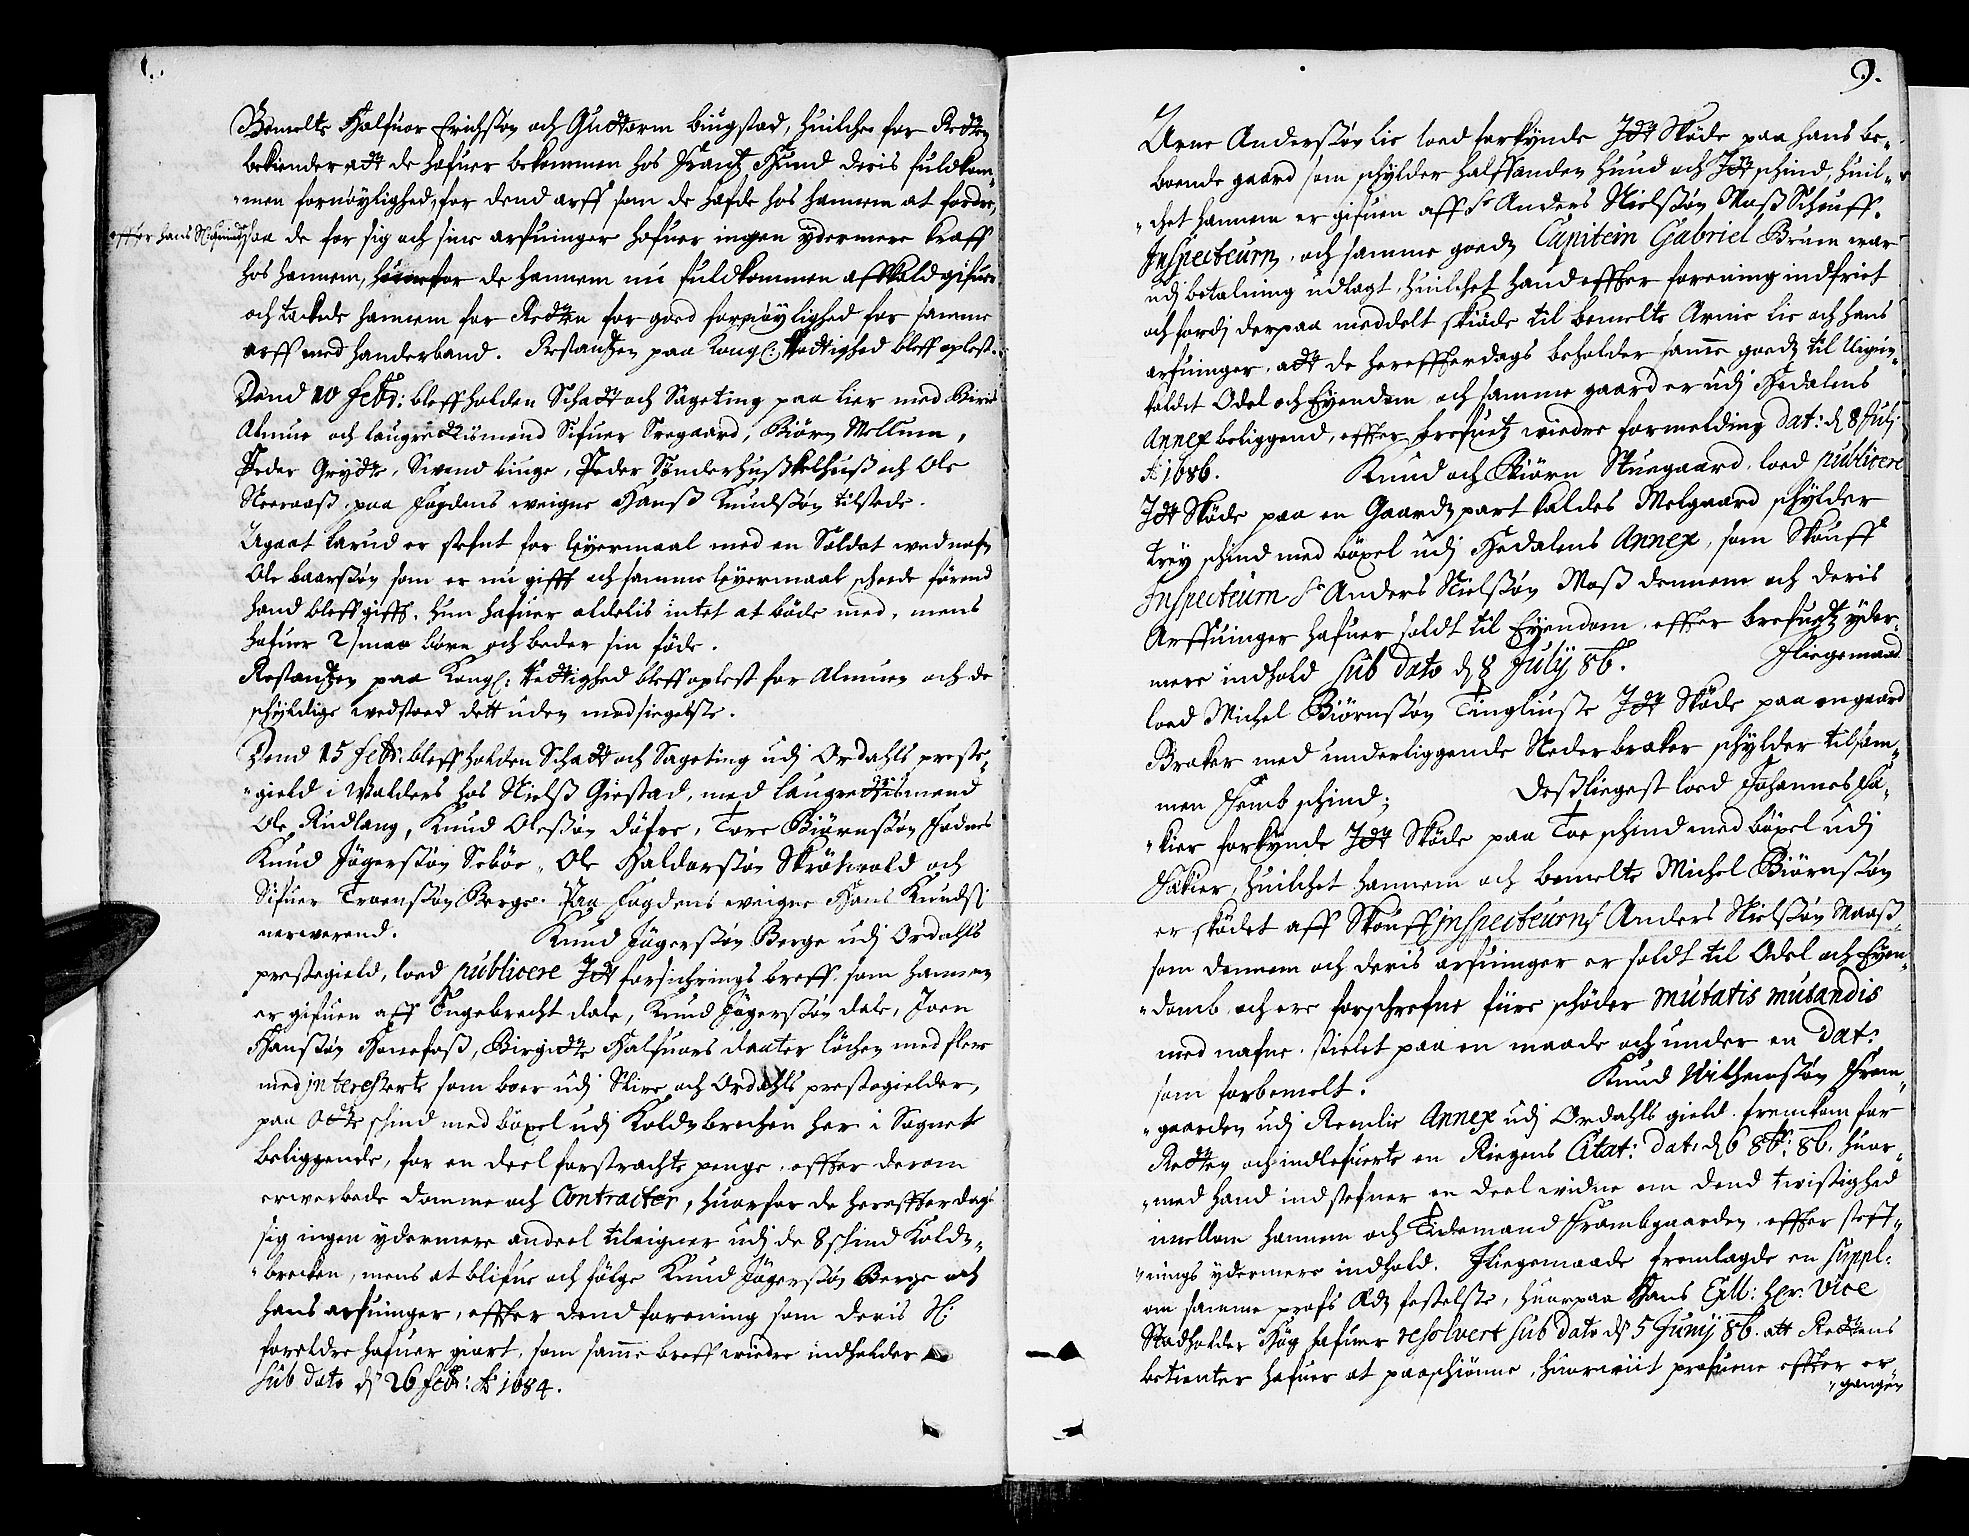 Bemelte Halfuor Erichssøn och Guttorm biugstad, huilche for Retten
bekiender att de hafuer bekommen hos Frantz Hund deris fuldkom„
„men fornøylighed, for dend arff som de hafde hos hannem at fordre,
effter hans
saa de for sig och sine arfuinger hafuer ingen ydermere kraff
hos hannem, huorfor de hannem nu fuldkommen afkald gifuer
och tackede hannem for Retten for goed fornøylighed for samme
arff med handerband. Restantzen paa Kongl: Rettighed bleff oplest.
Dend 10 febr: bleff holden Schatt och Sageting paa Lier med Biris
Almue och laugrettismend Sifuer Sregaard, Biørn Mellum,
Peder Grytte, Swend liuge, Peder Sønderhuß kelhuß och Ole
Neeraaß, paa fogdens weigne Hanß Knudssøn tilstede.
Agaat larud er stefnt for leyermaal med en Soldat wed nafn
Ole baarssøn som er nu gifft och samme leyermaal scheede førend
hand bleff gifft. hun hafuer aldelis intet at bøde med, mens
hafuer 2 smaa børn och beder sin føde.
Restantzen paa Kongl: Rettighed bleff oplest for Almuen och de
schyldige wedstoed dett uden modsigelse.
Dend 15 febr: bleff holden Schatt och Sageting udj Ordahls preste„
„gield i Walders hos Nielß Giestad, med laugrettismend
Ole Rudlang, Knud Olessøn døfre, Tore Biørnssøn Fodnes
Knud Jøgerssøn Sebøe, Ole Haldorssøn Skrøtwold och
Sifuer Troenssøn Berge. Paa fogdens weigne Hans Knuds:
nerwerend. Knud Jøgerssøn Berge udj Ordahls
prestegield, loed publicere Jtt forsichrings breff som hannem
er gifuen aff Engebrecht dale, Knud Jøgerssøn dale, Joen
Hanssøn Honefoß, Birgitte Halfuors daater løchen med flere
med interesserte som boer udj Slire och Ordahls prestegielder,
paa Otte schind med bøxel udj Koldnbrechen her i Sognet
beliggende, for en deel forstrachte penge, effter derom
erwerbede domme och Contracter, huorfor de hereffterdags
sig ingen ydermere andeel tileigner udj de 8 schind Koldn„
„brecken, mens at blifue och følge Knud Jøgerssøn Berge och
hans arfuinger, effter dend forening som deris Sl:
foreldre hafuer giort, som samme breff widre indholder
sub dato d 26 febr: Ao 1684.
9.
Arne Anderssøn lie loed forkynde Jtt Skøde paa hans be„
boende gaard som schylder halffanden huud och Jtt schind, huil„
„chet hannem er gifuen aff Sr Anders Nielssøn Maß Schouff.
Inspecteurn, och samme goedtz Capitein Gabriel Bruun war
udj betalning udlagt, huilchet hand effter forening indfriet
och fordj derpaa meddelt skiøde til bemelte Arnie lie och hans
arfuinger, att de hereffterdags beholder samme goedtz til Uigien„
kaldet Odel och Eyendom och samme gaard er udj Hedalens
Annex beliggend, effter brefuetz widre formelding Dat: d 8 Julj
Ao 1686. Knud och Biørn Skuegaard loed publicere
Jtt Skøde paa en Gaardz part kaldes Melgaard schylder
trey schind med bøxel udj Hedalens Annex, som Skouff
Inspecteurn Sr Anders Nielssøn Maß dennem och deris
Arffuinger hafuer soldt til Eyendom, effter brefuetz yder„
mere indhold sub dato d 8 July 86. Jliegemaad
loed Michel Biørnssøn Tingliuste Jtt Skøde paa en gaard
Braker med underliggende Nederbraker schylder tilsam„
men Femb schind; Deßliegest loed Johannes Fa„
„kier forkynde Jtt Skøde paa Toe schind med bøxel udj
Fakier, huilchet hannem och bemelte Michel Biørnssøn
er skødet aff Skouff inspecteurn Sr Anders Nielssøn Maaß
som dennem och deris arfuinger er soldt til Odel och Eyen„
„domb, och ere forschrefne fiire schøder mutatis mutandis
med nafne stielet paa en maade och under en Dat:
som forbemelt. Knud Withemssøn Fram„
„gaarden udj Remlie Annex udj Ordahls gield fremkom for
Retten och indlefuerte en Riegens Citat: Dat: d 6 8br: 86. huor„
„med hand indstefner en deel widne om dend twistighed
imellom hannem och Tidemand Frambgaarden, effter steff„
„nings ydermere indhold. Jliegemaade fremlagde en suppl:
om samme profs Odz festelse, huorpaa Hans Exll: her Vice
Stadholder Høg hafuer resolvert sub dato d 5 Junij 86. att Rettens
betienter hafuer at paaschiønne, huorwiit profuene effter er„
„gangen